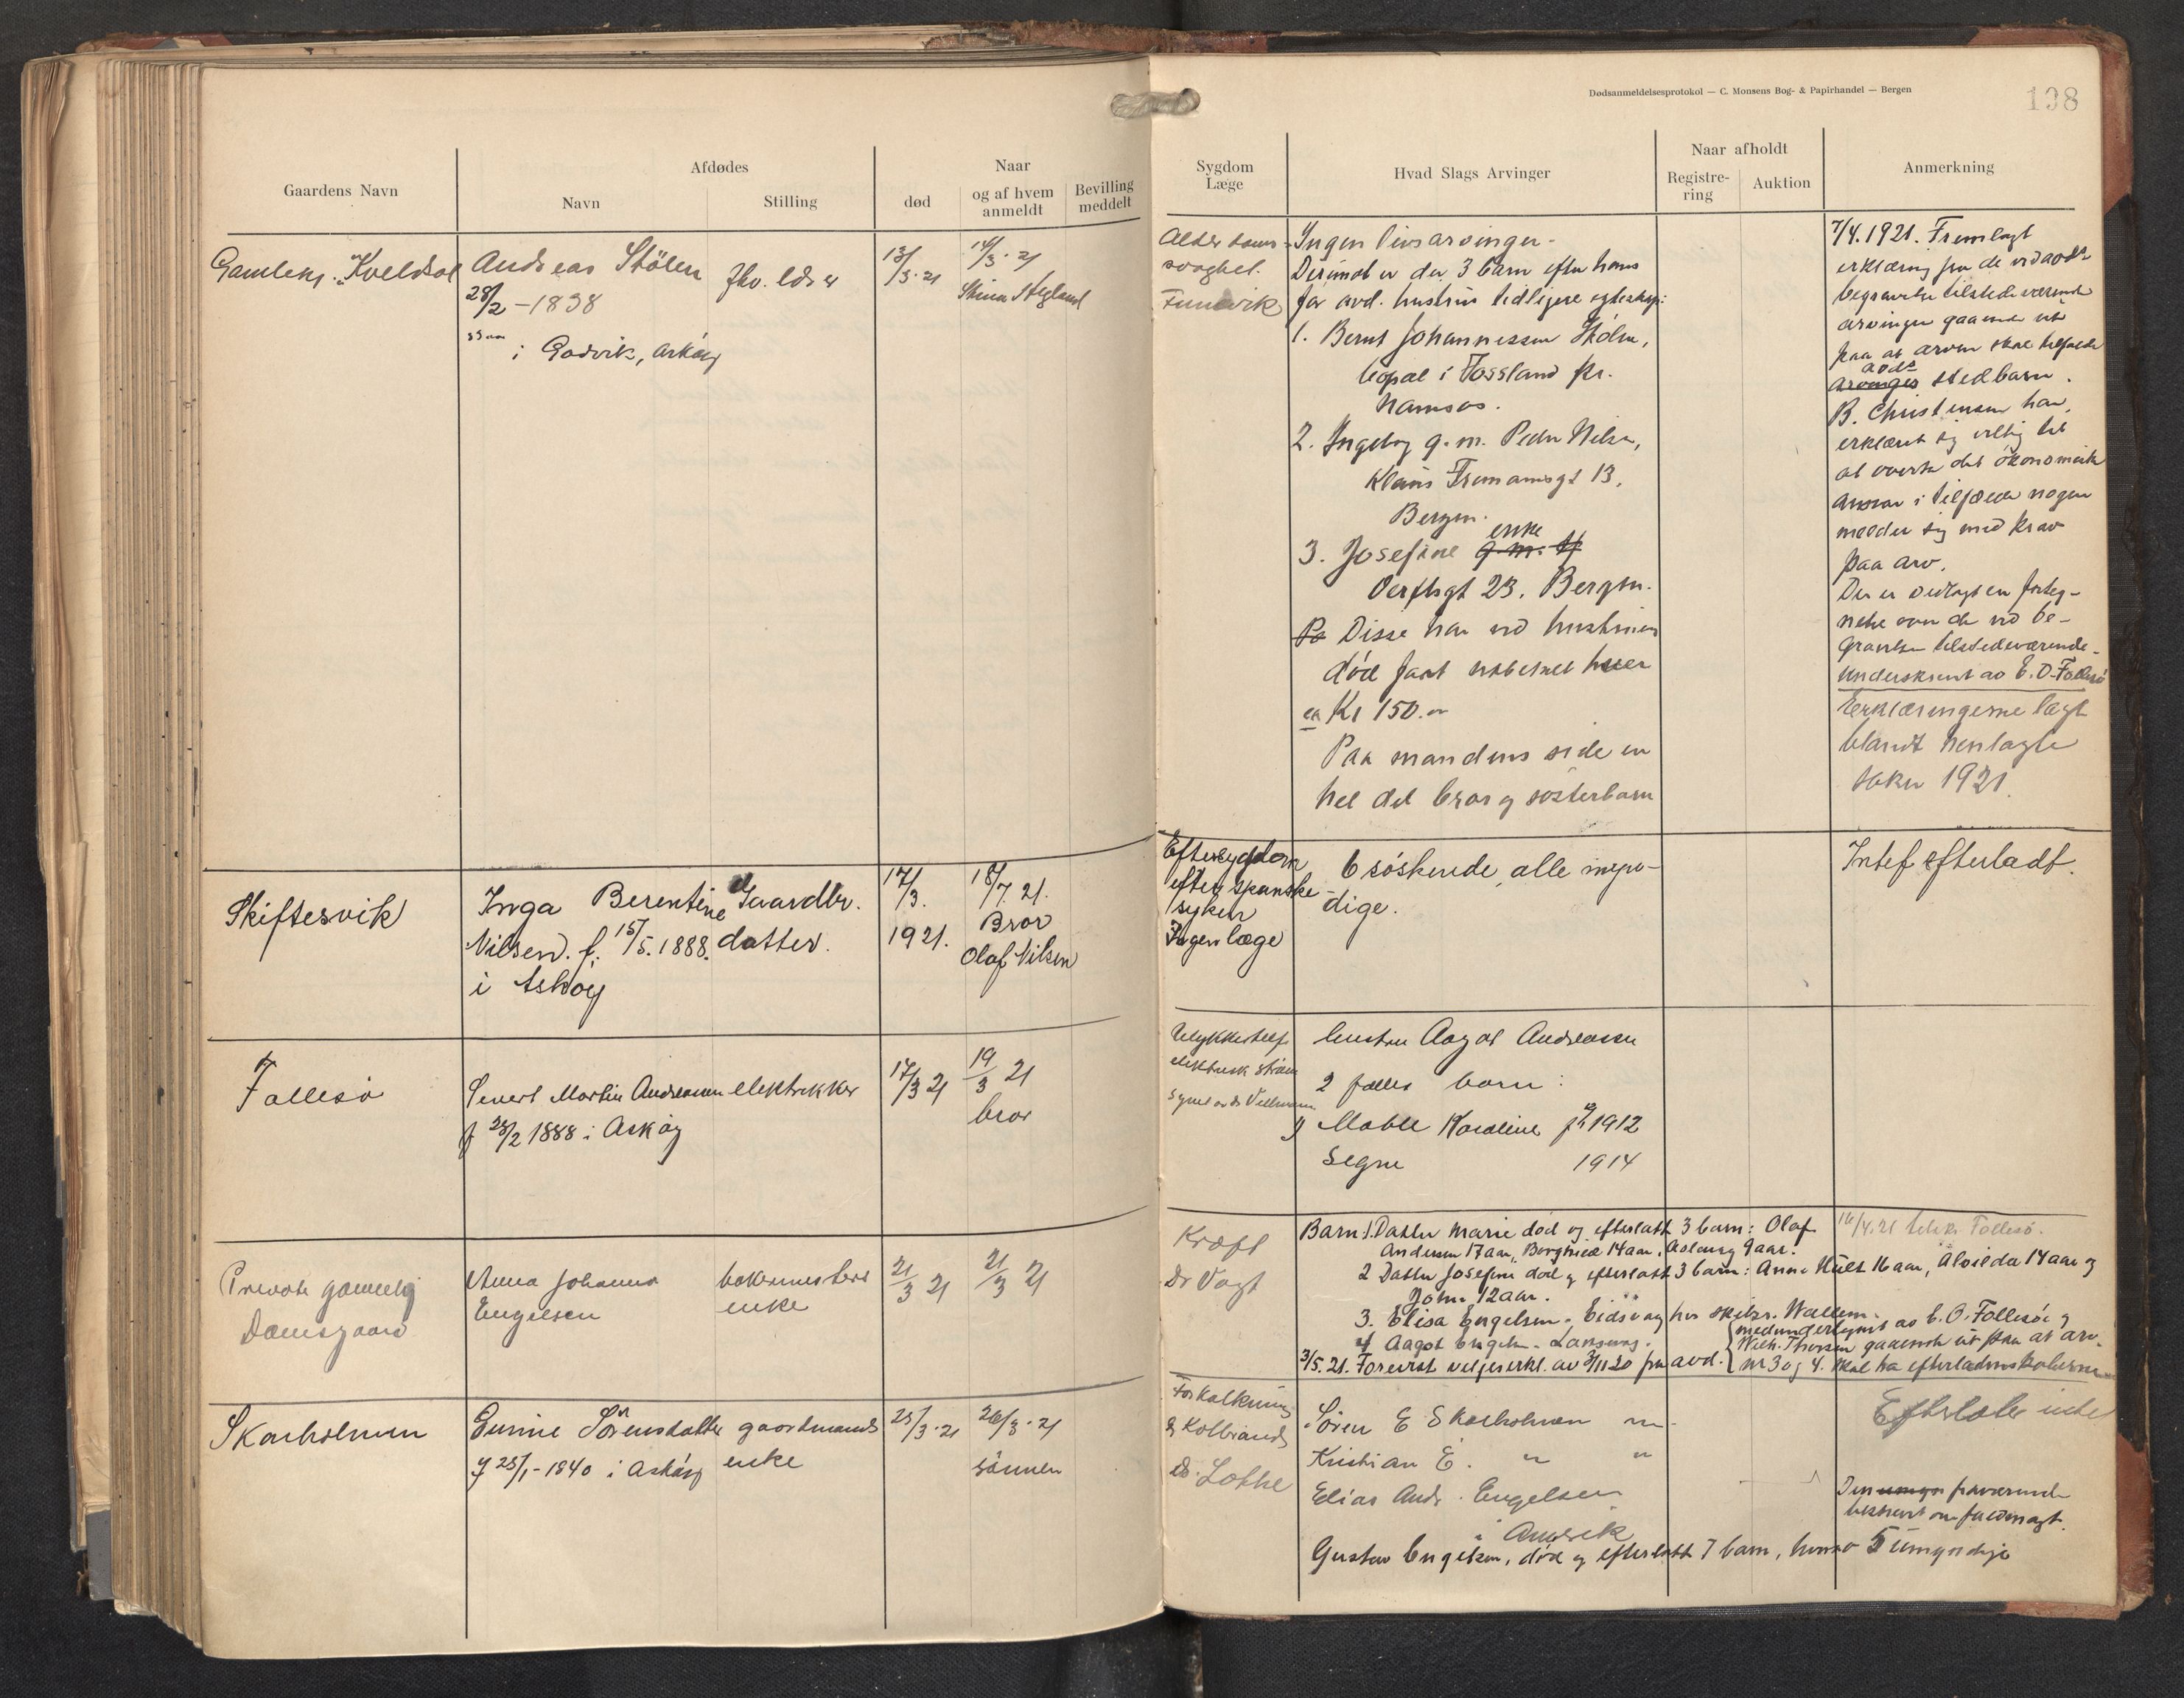 Dødsanmeldelsesprotokol — C. Monsens Bog- & Papirhandel — Bergen
198
Gaardens Navn
Afdødes
Navn
Stilling
Naar
død
og af hvem anmeldt
Bevilling meddelt
Sygdom
Læge
Hvad Slags Arvinger
Naar afholdt
Registrering
Auktion
Anmerkning
Gamlehj. "Kveldsol
Andreas Stölen
28/2 - 1838
i Godvik, Askøy
fhv.
13/3 · 21
14/3 · 21
Alderdoms-
svaghet.
Ingen livsarvinger.
Derimot er der 3 barn efter hans
før avd. hustrus tidligere egteskap:
1. Bernt Johannessen Stölen,
bopæl i Fossland pr.
Namsos.
2. Ingeborg g.m. Peder Nilsen,
13,
Bergen.
3. Josefine g.m. enke
23, Bergen.
Disse har ved hustruens
død faat utbetalt hver
ca Kr 150.-
Paa mandens side en
hel del bror og søsterbarn
7/4.1921. Fremlagt
erklæring fra de ved avdes
begravelse tilstedeværende
arvinger gaaende ut
paa at arven skal tilfalde
arvinges avdes stedbarn.
B. Christensen har
erklært sig villig til
at overta det økonomiske
ansvar i tilfælde nogen
melder sig med krav
paa arv.
Der er vedlagt en forteg-
nelse over de ved be-
gravelsen tilstedeværende
underskrevet av E. O. Follesø
Erklæringerne lagt
blandt henlagte
saker 1921.
Skiftesvik
Inga Berentine
Nilsen. f. 15/5.1888.
i Askøy
Gaardbr.
datter.
17/3.
1921.
18/7. 21.
Bror
Olaf Nilsen
Eftersygdom
efter spanske
syken
Ingen læge
6 søskende, alle myn-
dige.
Intet efterladt.
Follesø
Severt Martin Andreassen
f 28/2 1888 i Askøy
elektrikker
17/3 21
19/3 21
bror
Ulykkestilf.
elektrisk strøm
hustru Aagot Andreassen
2 fælles barn:
1) Mable Karoline 1912
Segne 1914
Private gamlehj
Damsgaard
Anna Johanna
Engelsen
bakermesters
enke
21/3 21
21/3 21
Kræft
Dr Vogt
Barn 1. Datter Marie død og efterlatt 3 barn: Olaf
Andersen 17 aar, Borghild 14 aar, Aslaug 9 aar.
2 Datter Josefine død og efterlatt 3 barn: Anna 16 aar, Alvilda 14 aar og
John 12 aar.
3. Elisa Engelsen - Eidsvaag hos skibsr. Wallem.
4 Aagot Engelsen - Laksevåg.
3/5.21. Forevist erkl. av 3/11 20 fra avd.
medundertegnet av E. O. Follesø og
Wilh. Thorsen gaaende ut paa at arv.
nr 3 og 4. skal ha efterladenskaberne
Skarholmen
Gurine Sørensdatter
f 25/1 - 1840 i Askøy
gaardmands
enke
25/3 · 21
26/3 · 21
sønnen
Forkalkning
& Kolbrand
Dr. Lothe
Søren E Skarholmen m
Kristian E. " "
Elias Andr. Engelsen
i Amerik
Gustav Engelsen, død og efterlatt 7 barn, hvorav 5 umyndige
Efterlot intet
Den fraværende
bestyrer om fuldmagt.